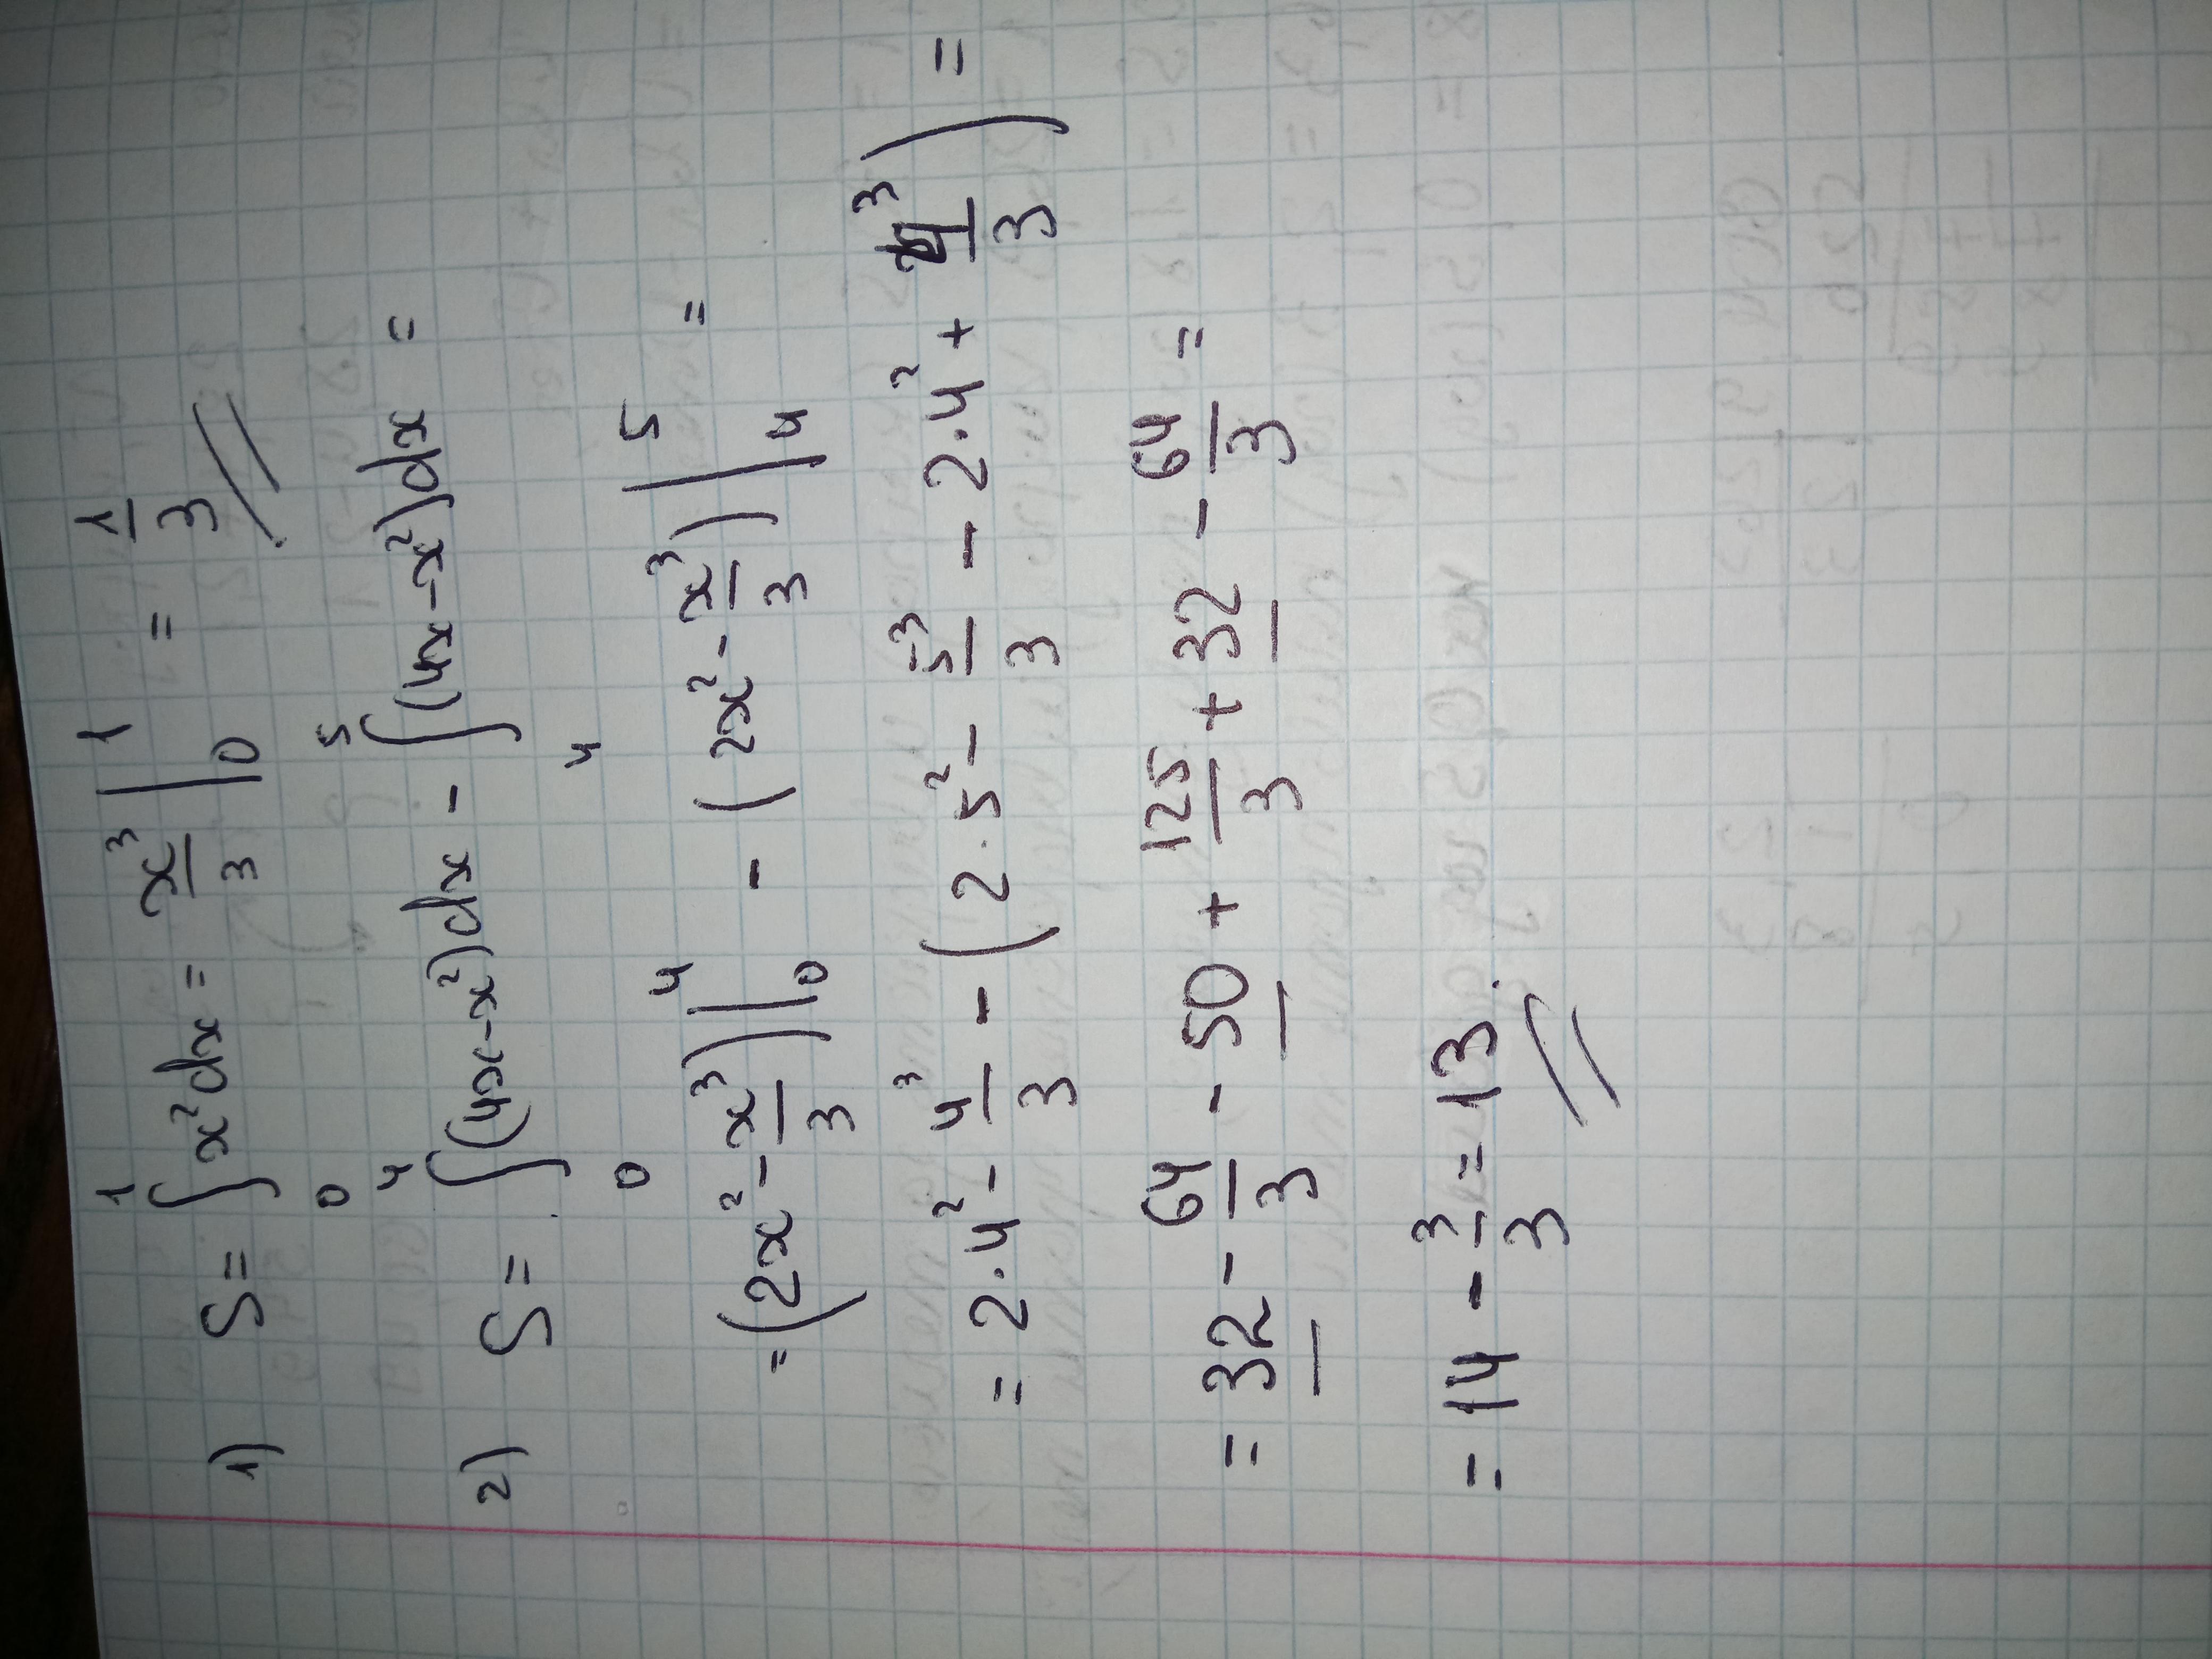 1) S = ∫₀¹ x² dx = x³/3 |₀¹ = 1/3
2) S = ∫₀⁴ (4x - x²) dx - ∫₄⁵ (4x - x²) dx =
= (2x² - x³/3) |₀⁴ - (2x² - x³/3) |₄⁵ =
= 2·4² - 4³/3 - (2·5² - 5³/3 - 2·4² + 4³/3) =
= 32 - 64/3 - 50 + 125/3 + 32 - 64/3 =
= 14 - 3/3 = 13.